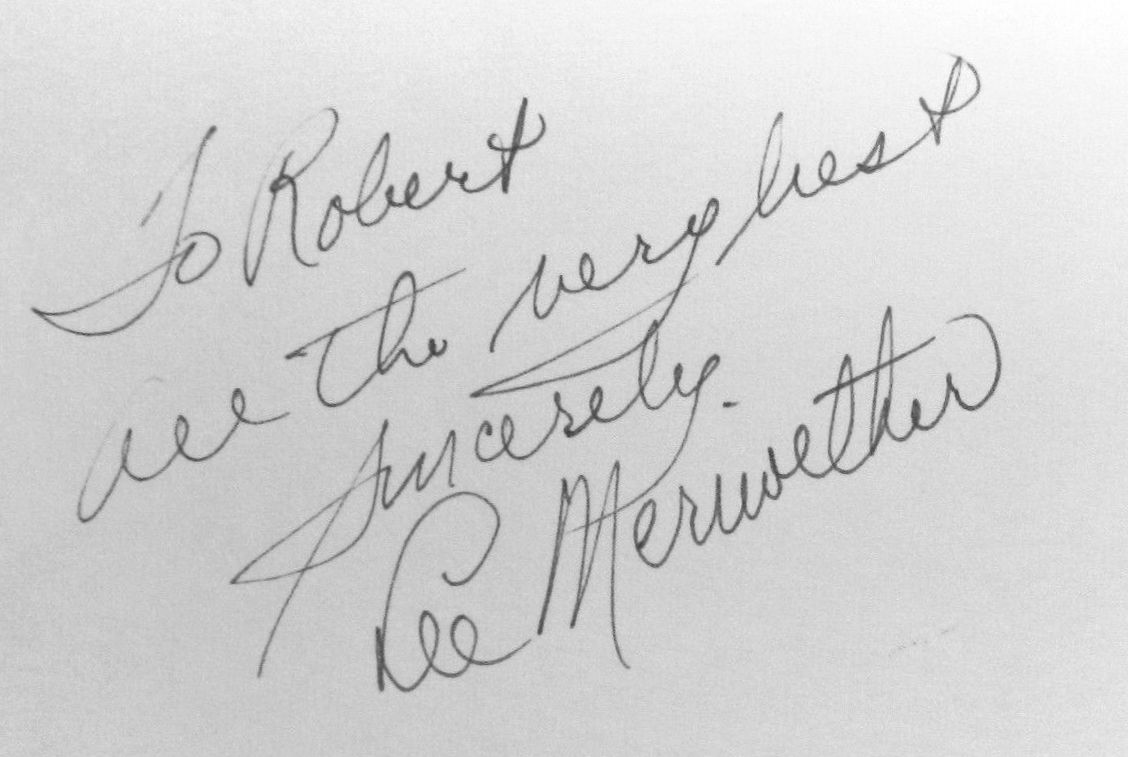 To Robert
all the very best
Sincerely.
Lee Meriwether